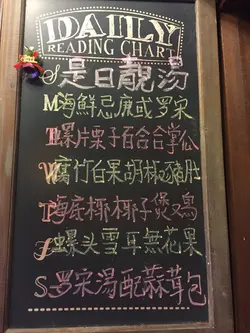 DAILY
READING CHART
S 是日靚汤
M 海鮮忌廉或罗宋
T 螺片栗子百合合掌瓜
W 腐竹白果胡椒豬肚
T 海底椰椰子煲鸡
F 螺头雪耳無花果
S 罗宋湯配蒜茸包